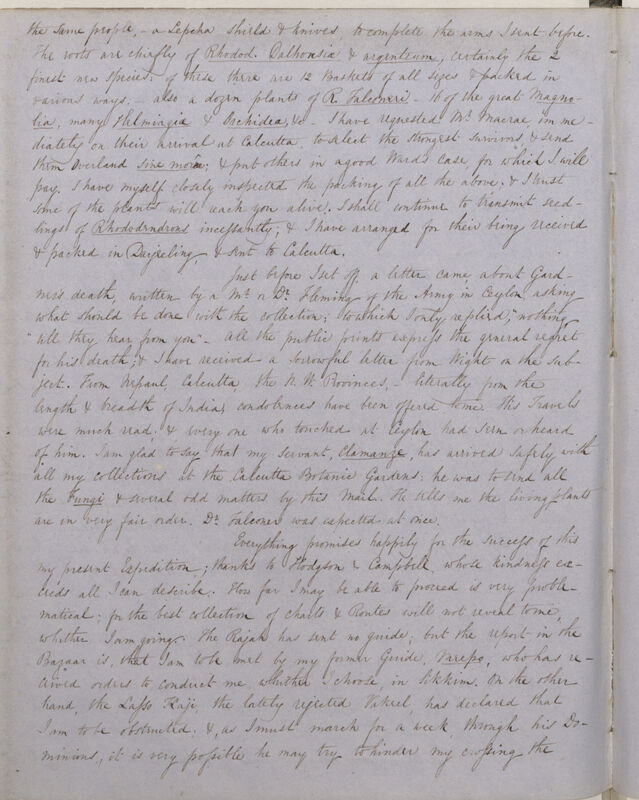 the same people, - a Lepcha shield & knives, to complete the arms I sent before.
The roots are chiefly of Rhodod. Dalhousiæ & argenteum, certainly the 2
finest new species: of these there are 12 Baskets of all sizes & packed in
various ways; - also a dozen plants of R. Falconeri - 16 of the great Magno-
lia, many Helwingia & Orchideæ, &c - I have requested Mr Macrae imme-
diately on their arrival at Calcutta, to select the strongest survivors, & send
them Overland sine morâ; & put others in a good Ward's Case, for which I will
pay. I have myself closely inspected the packing of all the above; & I trust
some of the plants will reach you alive. I shall continue to transmit seed-
lings of Rhododendrons incessantly; & I have arranged for their being received
& packed in Darjeeling, & sent to Calcutta.
Just before I set off, a letter came about Gard-
ner's death, written by a Mr or Dr Fleming of the Army in Ceylon, asking
what should be done with the collection; to which I only replied, "nothing,
"till they hear from you" - All the public prints express the general regret
for his death; & I have received a sorrowful letter from Wight on the sub-
ject. From Nepaul, Calcutta, the N. W. Provinces, - literally from the
length & breadth of India, condolences have been offered to me. His Travels
were much read; & every one who touched at Ceylon had seen or heard
of him. I am glad to say that my servant, Clamanze, has arrived safely with
all my collections at the Calcutta Botanic Gardens: he was to send all
the Fungi & several odd matters by this Mail. He tells me the living plants
are in very fair order. Dr Falconer was expected at once.
Everything promises happily for the success of this
my present Expedition; thanks to Hodgson & Campbell, whose kindness ex-
ceeds all I can describe. How far I may be able to proceed is very proble-
matical; for the best collection of charts & Routes will not reveal to me,
whither I am going. The Rajah has sent no guide; but the report in the
Bazaar is, that I am to be met by my former Guide, Nareepo, who has re-
ceived orders to conduct me whither I choose, in Sikkim. On the other
hand, the Lasso Kaji, the lately rejected Vakeel, has declared that
I am to be obstructed; &, as I must march for a week through his Do-
minions, it is very possible he may try to hinder my crossing the